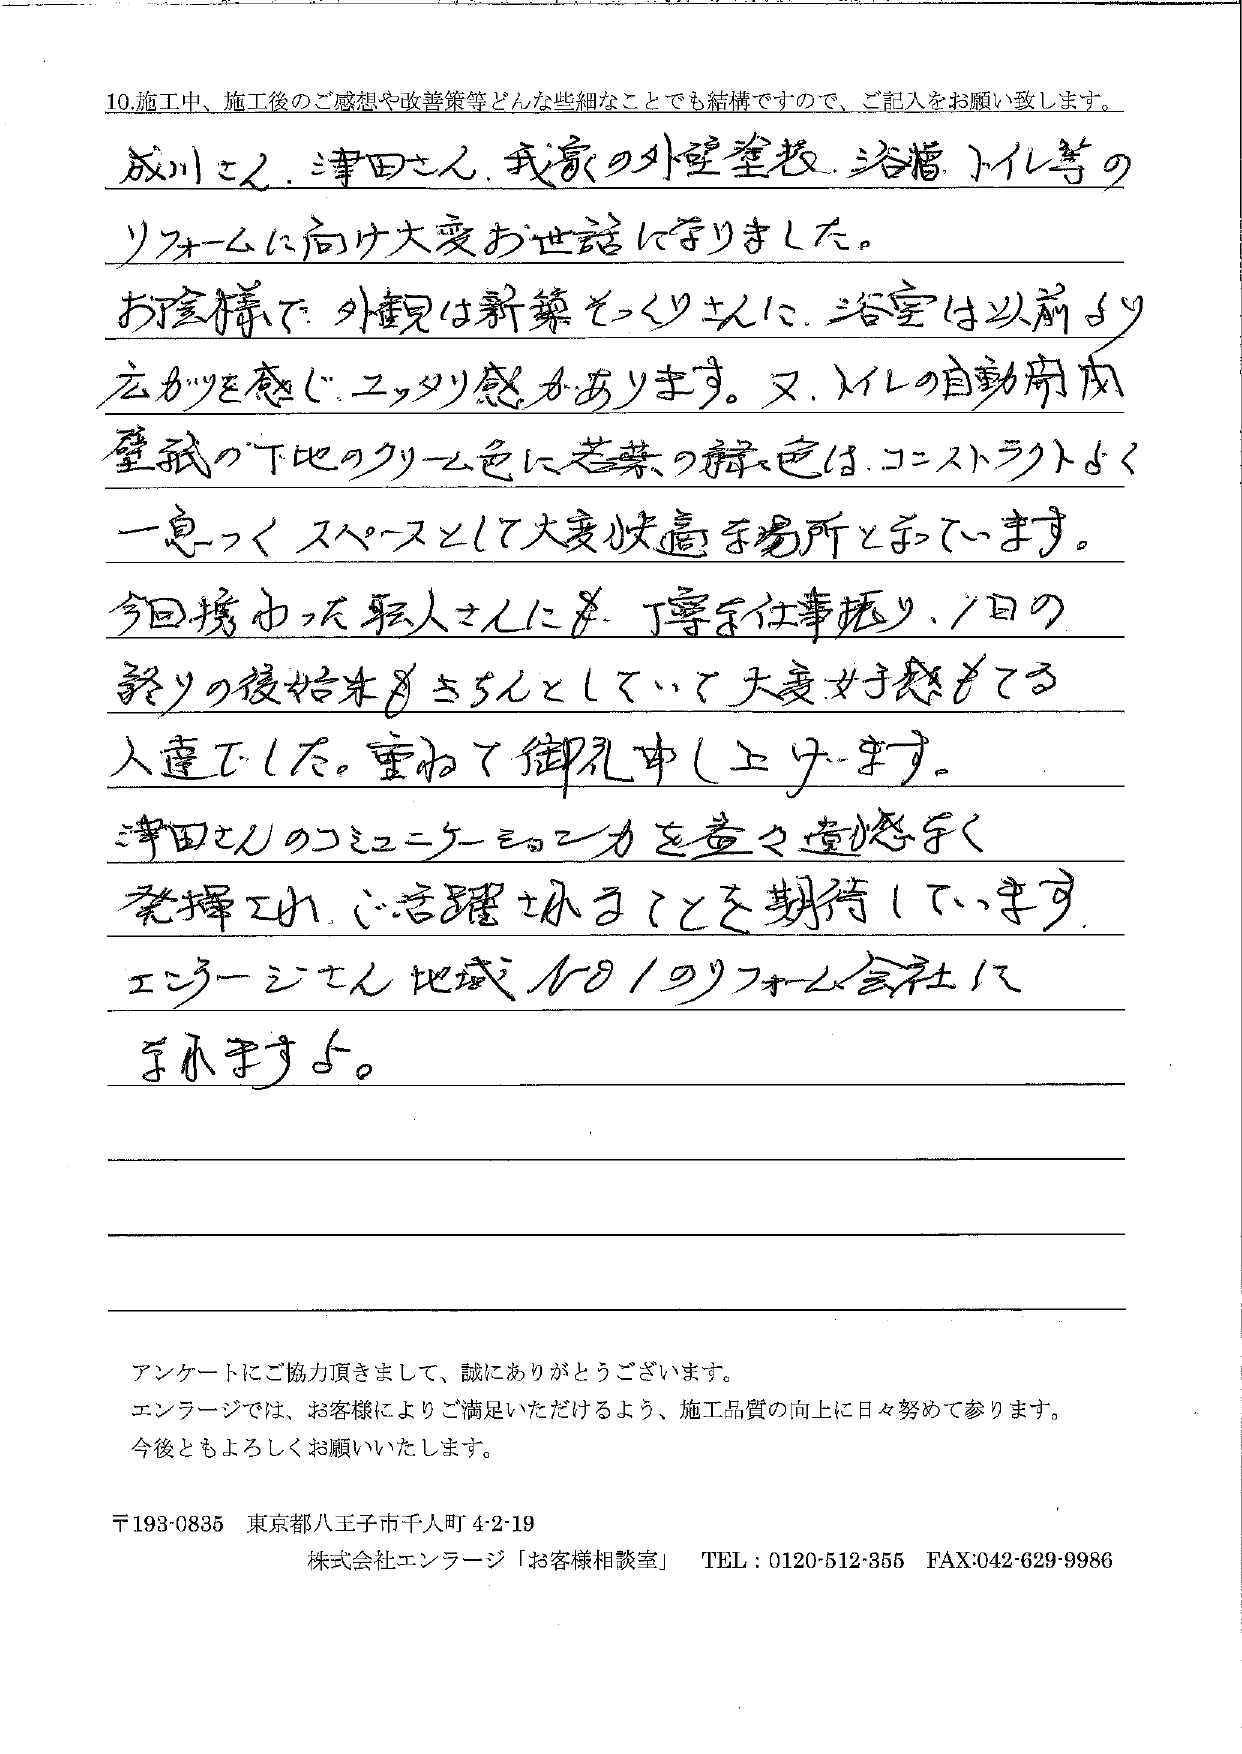 10.施工中、施工後のご感想や改善策等どんな些細なことでも結構ですので、ご記入をお願い致します。
成川さん、津田さん、我家の外壁塗装、浴槽、トイレ等の
リフォームに向け大変お世話になりました。
お陰様で、外観は新築そっくりさんに、浴室は以前より
広がりを感じ、ユッタリ感があります。又、トイレの自動開閉
壁紙の下地のクリーム色に若葉の緑色は、コンストラクトよく
一息つくスペースとして大変快適な場所となっています。
今回携わった職人さんにも、丁寧な仕事振り、1日の
終りの後始末もきちんとしていて大変好感もてる
人達でした。重ねて御礼申し上げます。
津田さんのコミュニケーション力を益々遺憾なく
発揮され、ご活躍されることを期待しています。
エンラージさん地域No1のリフォーム会社に
なれますよ。
アンケートにご協力頂きまして、誠にありがとうございます。
エンラージでは、お客様によりご満足いただけるよう、施工品質の向上に日々努めて参ります。
今後ともよろしくお願いいたします。
〒193-0835 東京都八王子市千人町 4-2-19
株式会社エンラージ「お客様相談室」 TEL：0120-512-355 FAX:042-629-9986